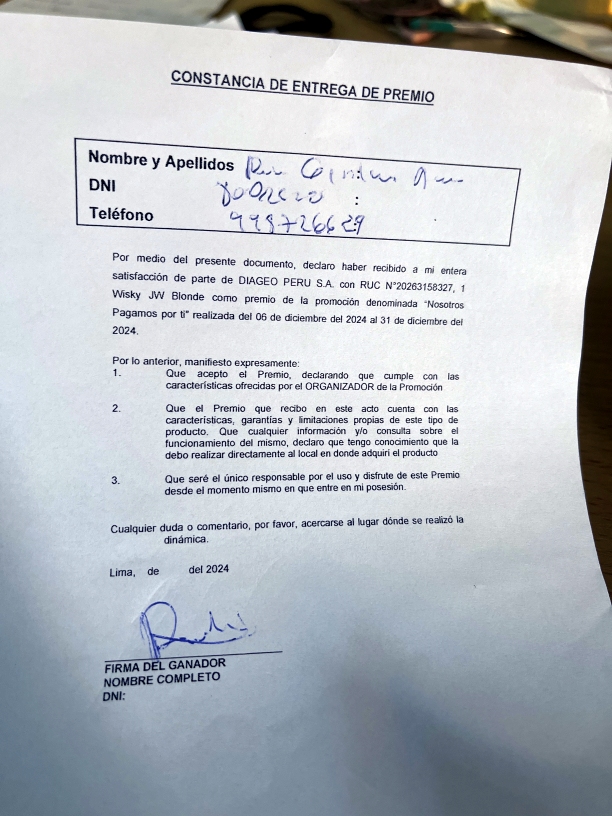 CONSTANCIA DE ENTREGA DE PREMIO
Nombre y Apellidos
DNI :
Teléfono
Por medio del presente documento, declaro haber recibido a mi entera
satisfacción de parte de DIAGEO PERU S.A. con RUC N°20263158327, 1
Wisky JW Blonde como premio de la promoción denominada "Nosotros
Pagamos por ti" realizada del 06 de diciembre del 2024 al 31 de diciembre del
2024.
Por lo anterior, manifiesto expresamente:
1. Que acepto el Premio, declarando que cumple con las
características ofrecidas por el ORGANIZADOR de la Promoción
2. Que el Premio que recibo en este acto cuenta con las
características, garantías y limitaciones propias de este tipo de
producto. Que cualquier información y/o consulta sobre el
funcionamiento del mismo, declaro que tengo conocimiento que la
debo realizar directamente al local en donde adquirí el producto
3. Que seré el único responsable por el uso y disfrute de este Premio
desde el momento mismo en que entre en mi posesión.
Cualquier duda o comentario, por favor, acercarse al lugar dónde se realizó la
dinámica.
Lima, de del 2024
FIRMA DEL GANADOR
NOMBRE COMPLETO
DNI: